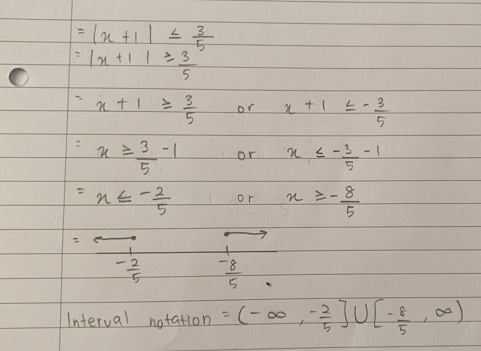 = |x + 1| ≤ 3/5
= |x + 1| ≥ 3/5
= x + 1 ≥ 3/5 or x + 1 ≤ -3/5
= x ≥ 3/5 - 1 or x ≤ -3/5 - 1
= x ≤ -2/5 or x ≥ -8/5
= -2/5 -8/5
Interval notation = (-∞, -2/5] ∪ [-8/5, ∞)